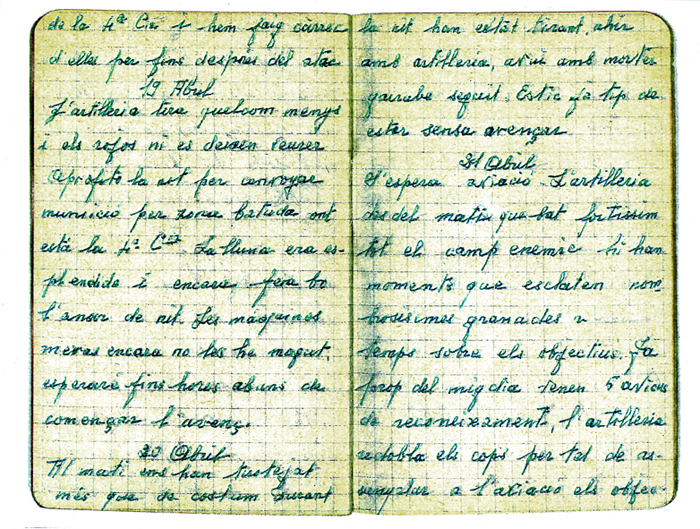 de la 4ª Cia i hem faig càrrec
d'elles per fins despres del atac
19 Abril
L'artilleria tira quelcom menys
i els rojos ni es deixen veurer
Aprofito la nit per comvoyar
municio per zona batuda ont
està la 4ª Cia La lluna era es-
plendida i encara feia bo
l'anar de nit. Les màquines
meves encara no les he mogut,
esperaré fins hores abans de
començar l'avenç.
20 Abril
Al mati ens han tirotejat
més que de costum durant
la nit han estat tirant, ahir
amb artilleria, avui amb morter
gairabe seguit. Estic ja tip de
estar sensa avençar
21 Abril
S'espera aviació. L'artilleria
des del mati que bat fortissim
tot el camp enemic hi han
moments que esclaten nom
brosisimes granades
temps sobre els objectius. Ja
prop del migdia venen 5 avions
de reconeixement, l'artilleria
redobla els cops per tal de as-
senyalar a l'aviació els objec-